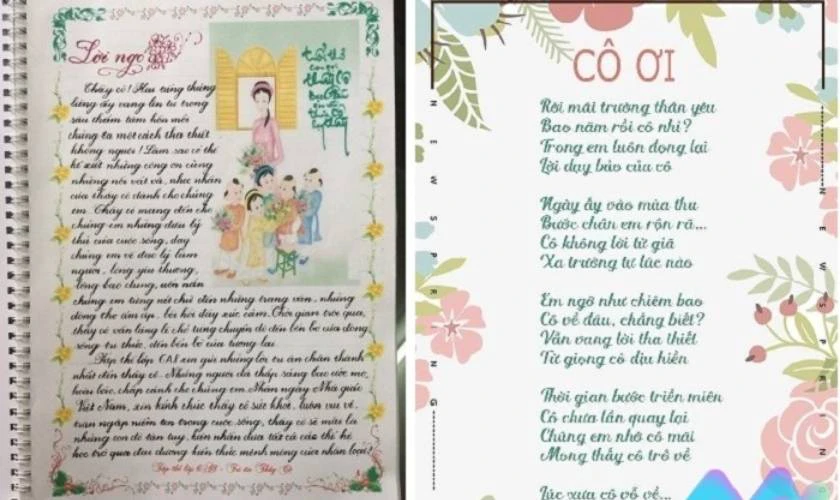 Lời ngỏ
Thầy cô! Hai tiếng thiêng
liêng ấy vang lên từ trong
sâu thẳm tâm hồn mỗi
chúng ta một cách tha thiết
khôn nguôi! Làm sao có thể
kể xiết những công ơn cùng
những nỗi vất vả, nhọc nhằn
của thầy cô dành cho chúng
em. Thầy cô mang đến cho
chúng em những điều kỳ
thú của cuộc sống, dạy
chúng em về đạo lý làm
người, lòng yêu thương,
lòng bao dung, uốn nắn
chúng em từng nét chữ đến những trang văn, những
dòng thơ ấm áp, bồi hồi đầy xúc cảm. Thời gian trôi qua,
thầy cô vẫn lặng lẽ chở từng chuyến đò đến bến bờ của dòng
sông tri thức, đến bến bờ của tương lai.
Tập thể lớp xin gửi những lời tri ân chân thành
nhất đến thầy cô - Những người đã thắp sáng bao ước mơ,
hoài bão, chắp cánh cho chúng em. Nhân ngày Nhà giáo
Việt Nam, xin kính chúc thầy cô sức khỏe, luôn vui vẻ,
tràn ngập niềm tin trong cuộc sống, thầy cô sẽ mãi là
những con đò tận tụy, cần mẫn đưa tất cả các thế hệ
học trò qua đại dương kiến thức mênh mông của nhân loại!
CÔ ƠI
Rời mái trường thân yêu
Bao năm rồi cô nhỉ?
Trong em luôn đọng lại
Lời dạy bảo của cô
Ngày ấy vào mùa thu
Bước chân em rộn rã...
Cô không lời từ giã
Xa trường tự lúc nào
Em ngỡ như chiêm bao
Cô về đâu, chẳng biết?
Vẫn vang lời tha thiết
Từ giọng cô dịu hiền
Thời gian bước triền miên
Cô chưa lần quay lại
Chúng em nhớ cô mãi
Mong thấy cô trở về
Lúc xưa cô vỗ về...
NEW SPRING
NEW SPRING